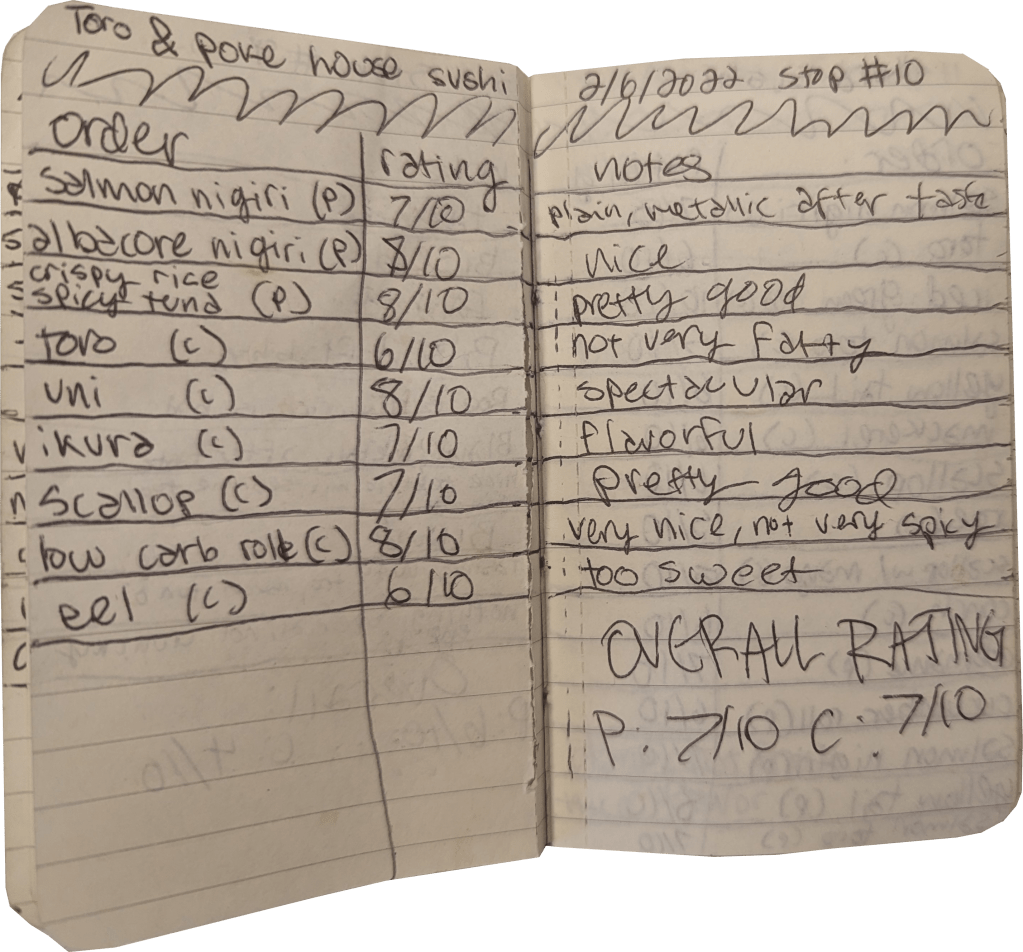 Toro & poke house sushi
order rating
salmon nigiri (P) 7/10
albacore nigiri (P) 8/10
crispy rice
spicy tuna (P) 8/10
toro (C) 6/10
uni (C) 8/10
ikura (C) 7/10
scallop (C) 7/10
low carb roll (C) 8/10
eel (C) 6/10
2/6/2022 stop #10
notes
plain, metallic after taste
nice
pretty good
not very fatty
spectacular
flavorful
pretty good
very nice, not very spicy
too sweet
OVERALL RATING
P: 7/10 C: 7/10